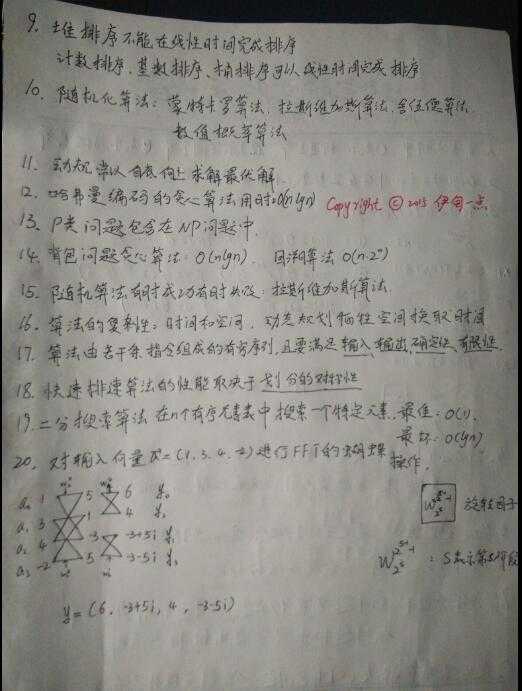 9. 堆排序不能在线性时间完成排序
计数排序、基数排序、桶排序可以线性时间完成排序
10. 随机化算法: 蒙特卡罗算法, 拉斯维加斯算法, 舍伍德算法,
数值概率算法
11. 动规常以自底向上求解最优解
12. 哈弗曼编码的贪心算法用时: O(nlgn)
Copyright © 2015 伊甸一点
13. P类问题包含在NP问题中.
14. 背包问题贪心算法: O(nlgn), 回溯算法 O(n·2ⁿ)
15. 随机算法有时成功有时失败: 拉斯维加斯算法
16. 算法的复杂性: 时间和空间, 动态规划牺牲空间换取时间
17. 算法由若干条指令组成的有穷序列, 且要满足输入, 输出, 确定性, 有限性.
18. 快速排速算法的性能取决于划分的对称性
19. 二分搜索算法在n个有序元素表中搜索一个特定元素, 最佳: O(1),
最坏: O(lgn)
20. 对输入向量 a = (1, 3, 4, -2) 进行FFT的蝴蝶操作.
a₀ 1 5 6 y₀
a₁ 3 1 4 y₂
a₂ 4 -3 -3+5i y₁
a₃ -2 5 -3-5i y₃
旋转因子
: S表示第S阶段
y = (6, -3+5i, 4, -3-5i)